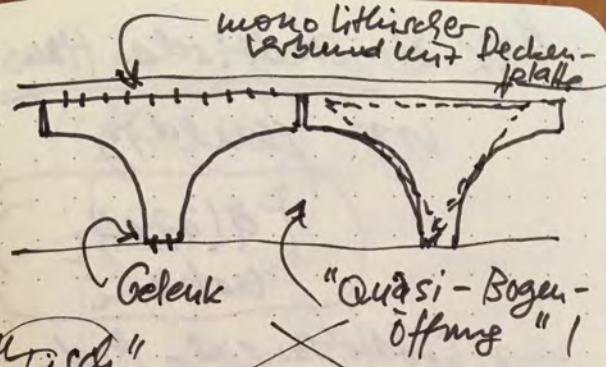 monolithischer
Verbund mit Decken-
platte
Gelenk
"Quasi-Bogen-
Öffnung"!
"Tisch"